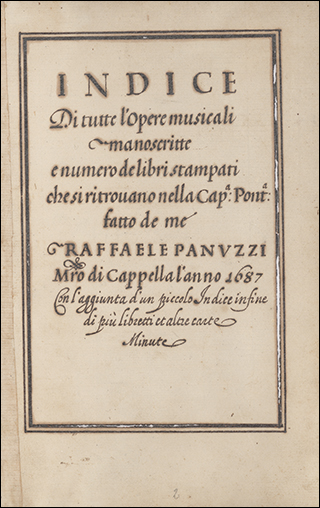 INDICE
Di tutte l'Opere musicali
manoscritte
e numero de libri stampati
che si ritrovano nella Cap.ª Pont.ª:
fatto de me
RAFFAELE PANVZZI
Mro di Cappella l'anno 1687
Con l'aggiunta d'un piccolo Indice in fine
di più libretti et altre carte
Minute
2